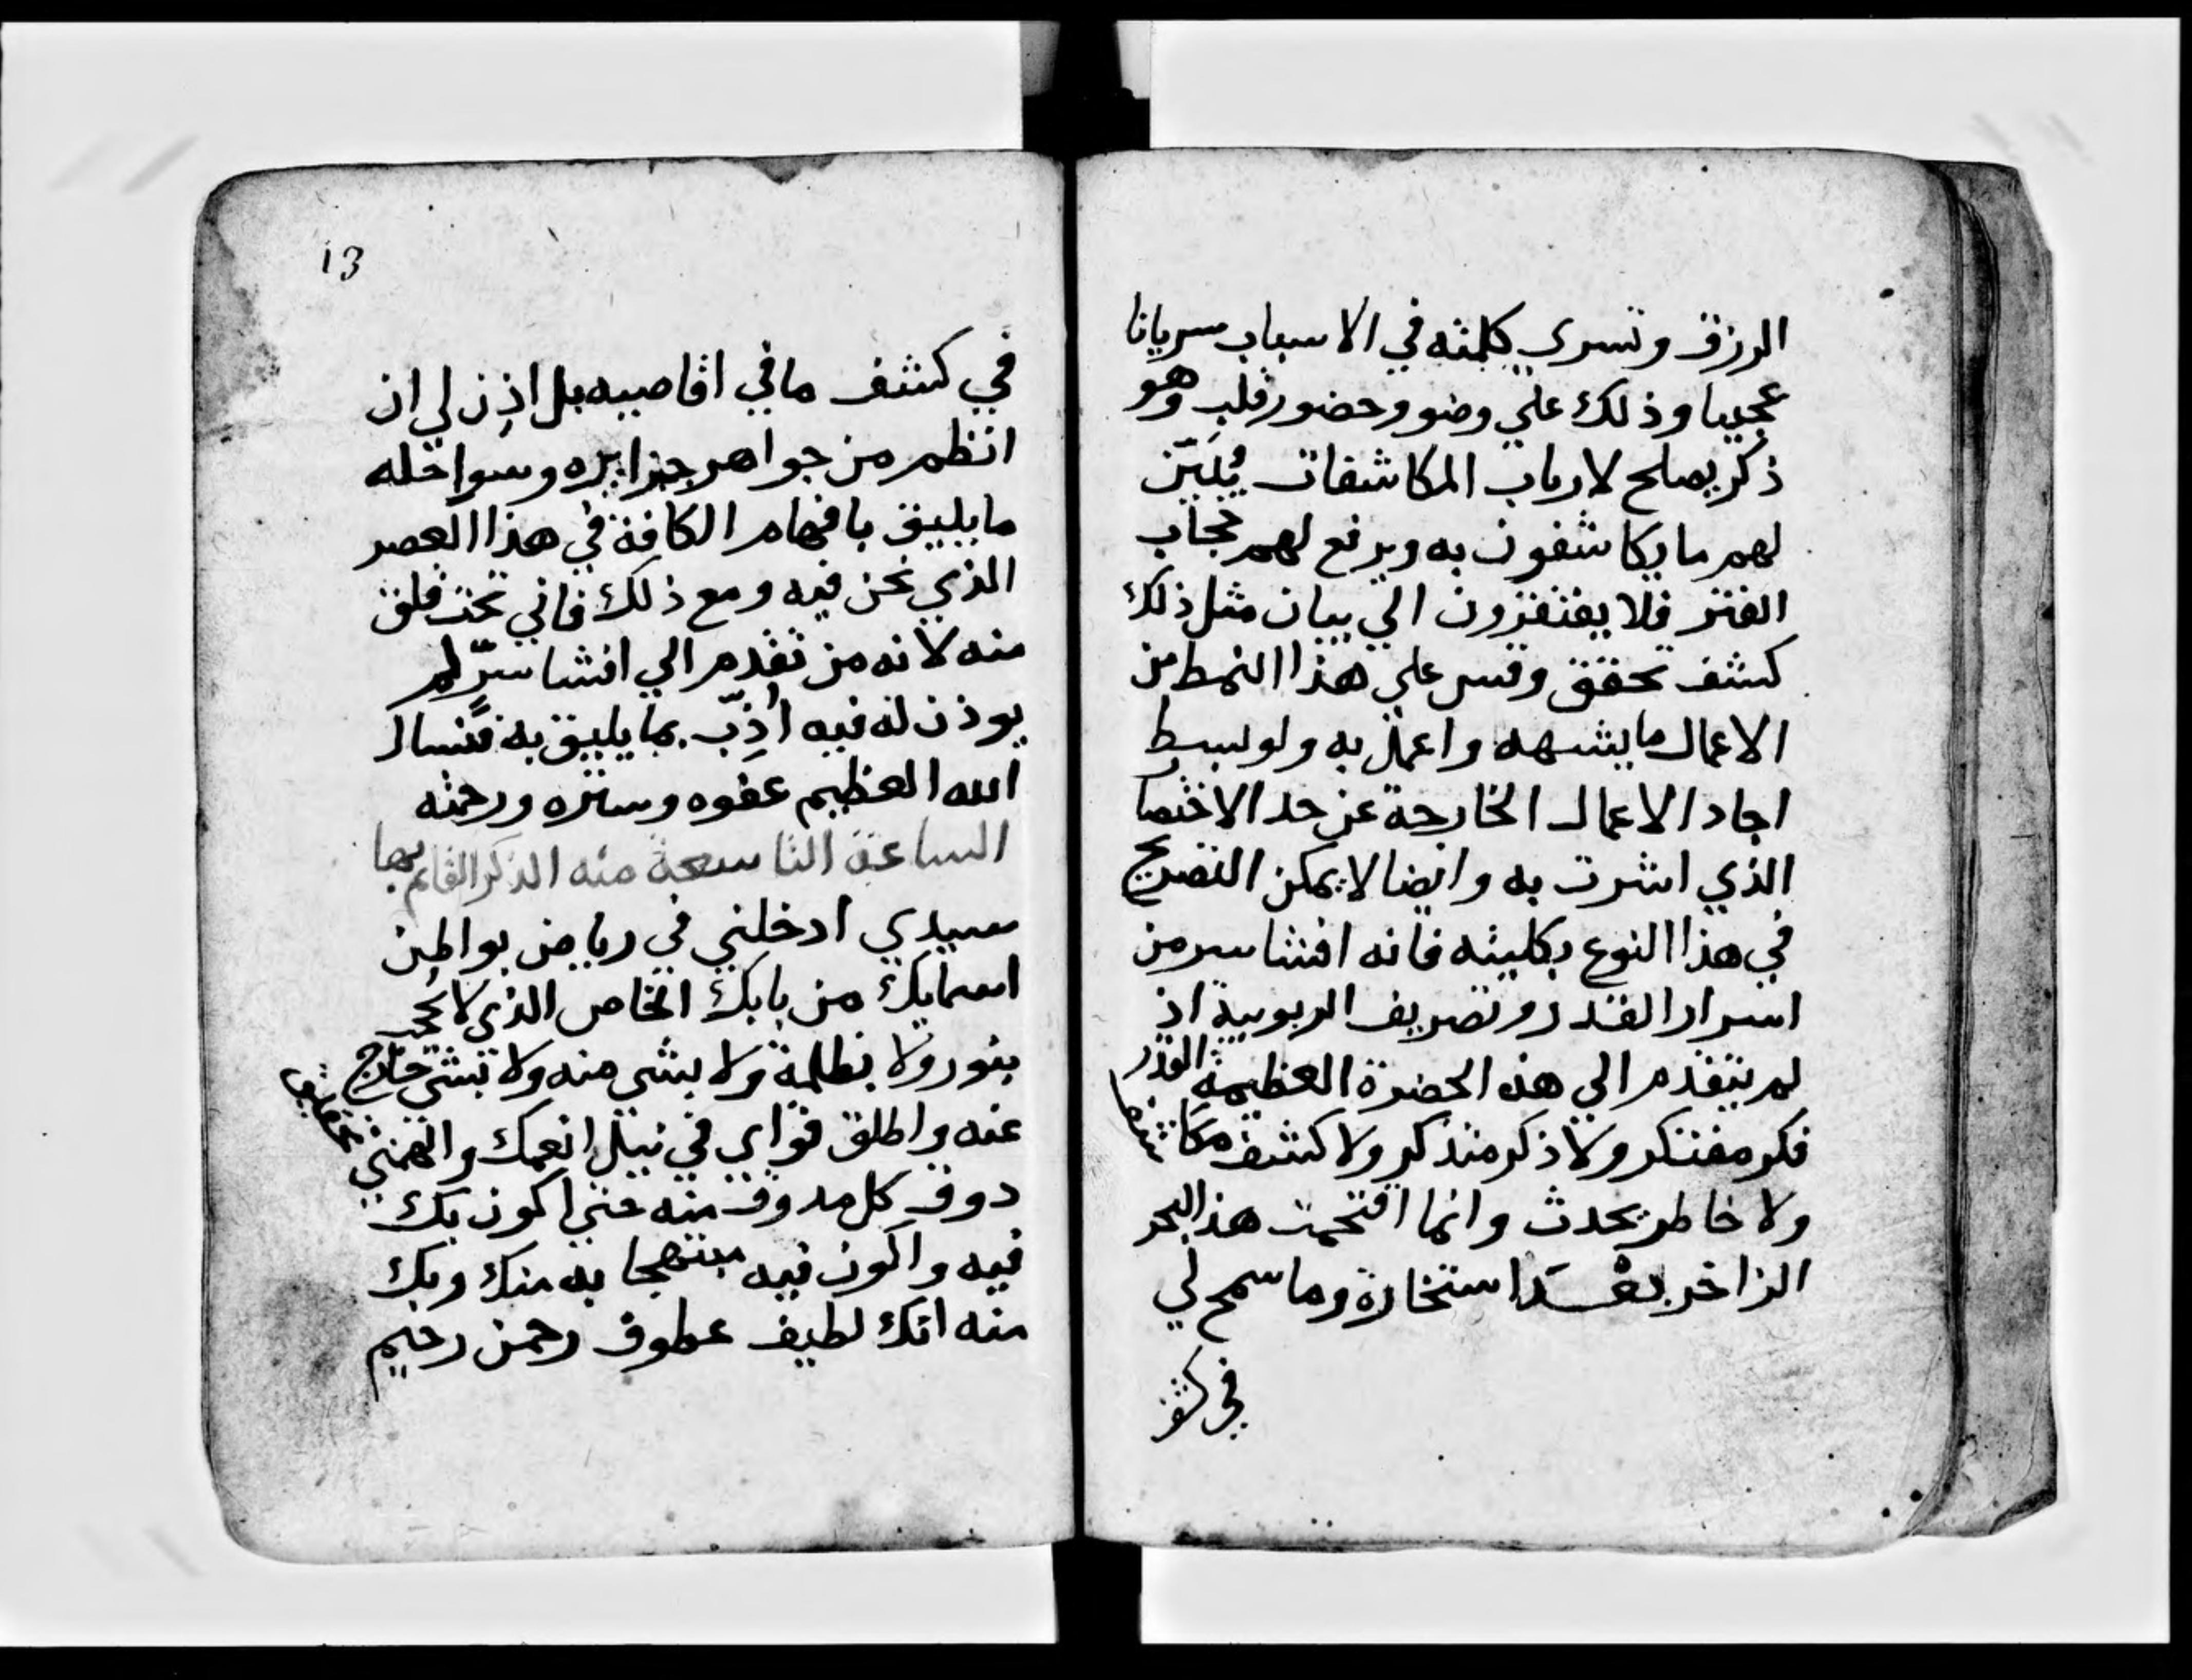 الرزق وتسري كلمته في الاسباب سريانا
عجيبا وذلك علي وضو وحضور قلب وهو
ذكر يصلح لارباب المكاشفات يُبَيّن
لهم ما يكاشفون به ويرفع لهم حجاب
الفتر فلا يفتقرون الي بيان مثل ذلك
كشف تحقق وقس علي هذا النمط من
الاعمال ما يشبهه واعمل به ولو لبسط
اجاد الاعمال الخارجة عن حد الاختصا
الذي اشرت به وايضا لا يمكن التصريح
في هذا النوع بكليته فانه افشا سر من
اسرار القدر وتصريف الربوبية اذ
لم يتقدم الي هذه الحضرة العظيمة القدر
فكر مفتكر ولا ذكر متذكر ولا كشف مكاشف
ولا خاطر يحدث وانما اقتحمت هذا البحر
الزاخر بعْد استخارة وما سمح لي
في كشف
13
في كشف ما في اقاصيه بل اذِن لي ان
انظم من جواهر جزايره وسواحله
ما يليق بافهام الكافة في هذا العصر
الذي نحن فيه ومع ذلك فاني تحت قلق
منه لانه من تقدم الي افشا سرٍّ لم
يوذن له فيه اُدِّب بما يليق به فنسال
الله العظيم عفوه وستره ورحمته
الساعة التاسعة منه الذكر القايم بها
سيدي ادخلني في رياض بواطن
اسمايك من بابك الخاص الذي لا يحجب
بنور ولا بظلمة ولا بشي منه ولا بشي خارج
عنه واطلق قواي في نيل انعمك والهمني
ذوق كل مذوق منه حتي اكون بك
فيه واكون فيه مبتهجا به منك وبك
منه انك لطيف عطوف رحمن رحيم